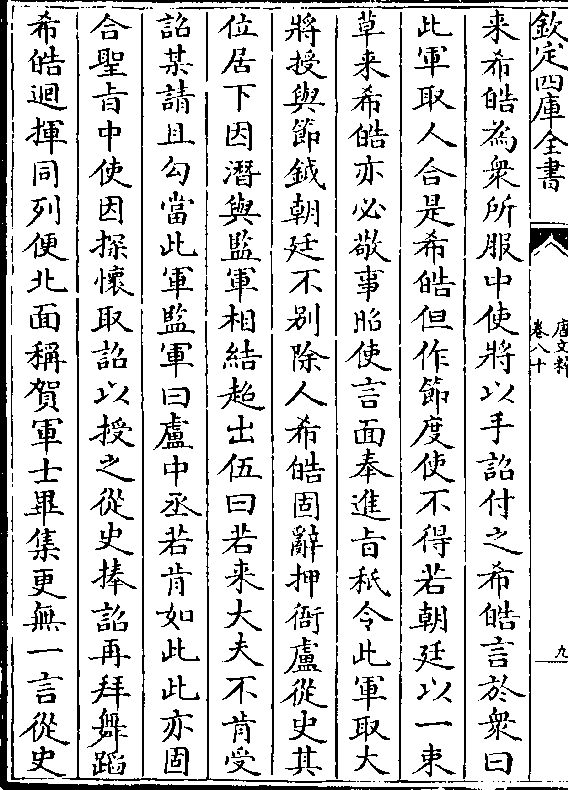 欽定四庫全書
唐文粹
卷八十
九
来希皓為衆所服中使將以手詔付之希皓言於衆曰
此軍取人合是希皓但作節度使不得若朝廷以一束
草来希皓亦必敬事昭使言面奉進旨秪令此軍取大
將授與節鉞朝廷不别除人希皓固辭押衙盧從史其
位居下因潛與監軍相結超出伍曰若来大夫不肯受
詔某請且勾當此軍監軍曰盧中丞若肯如此此亦固
合聖旨中使因探懐取詔以授之從史捧詔再拜舞蹈
希皓迴揮同列便北面稱賀軍士畢集更無一言從史